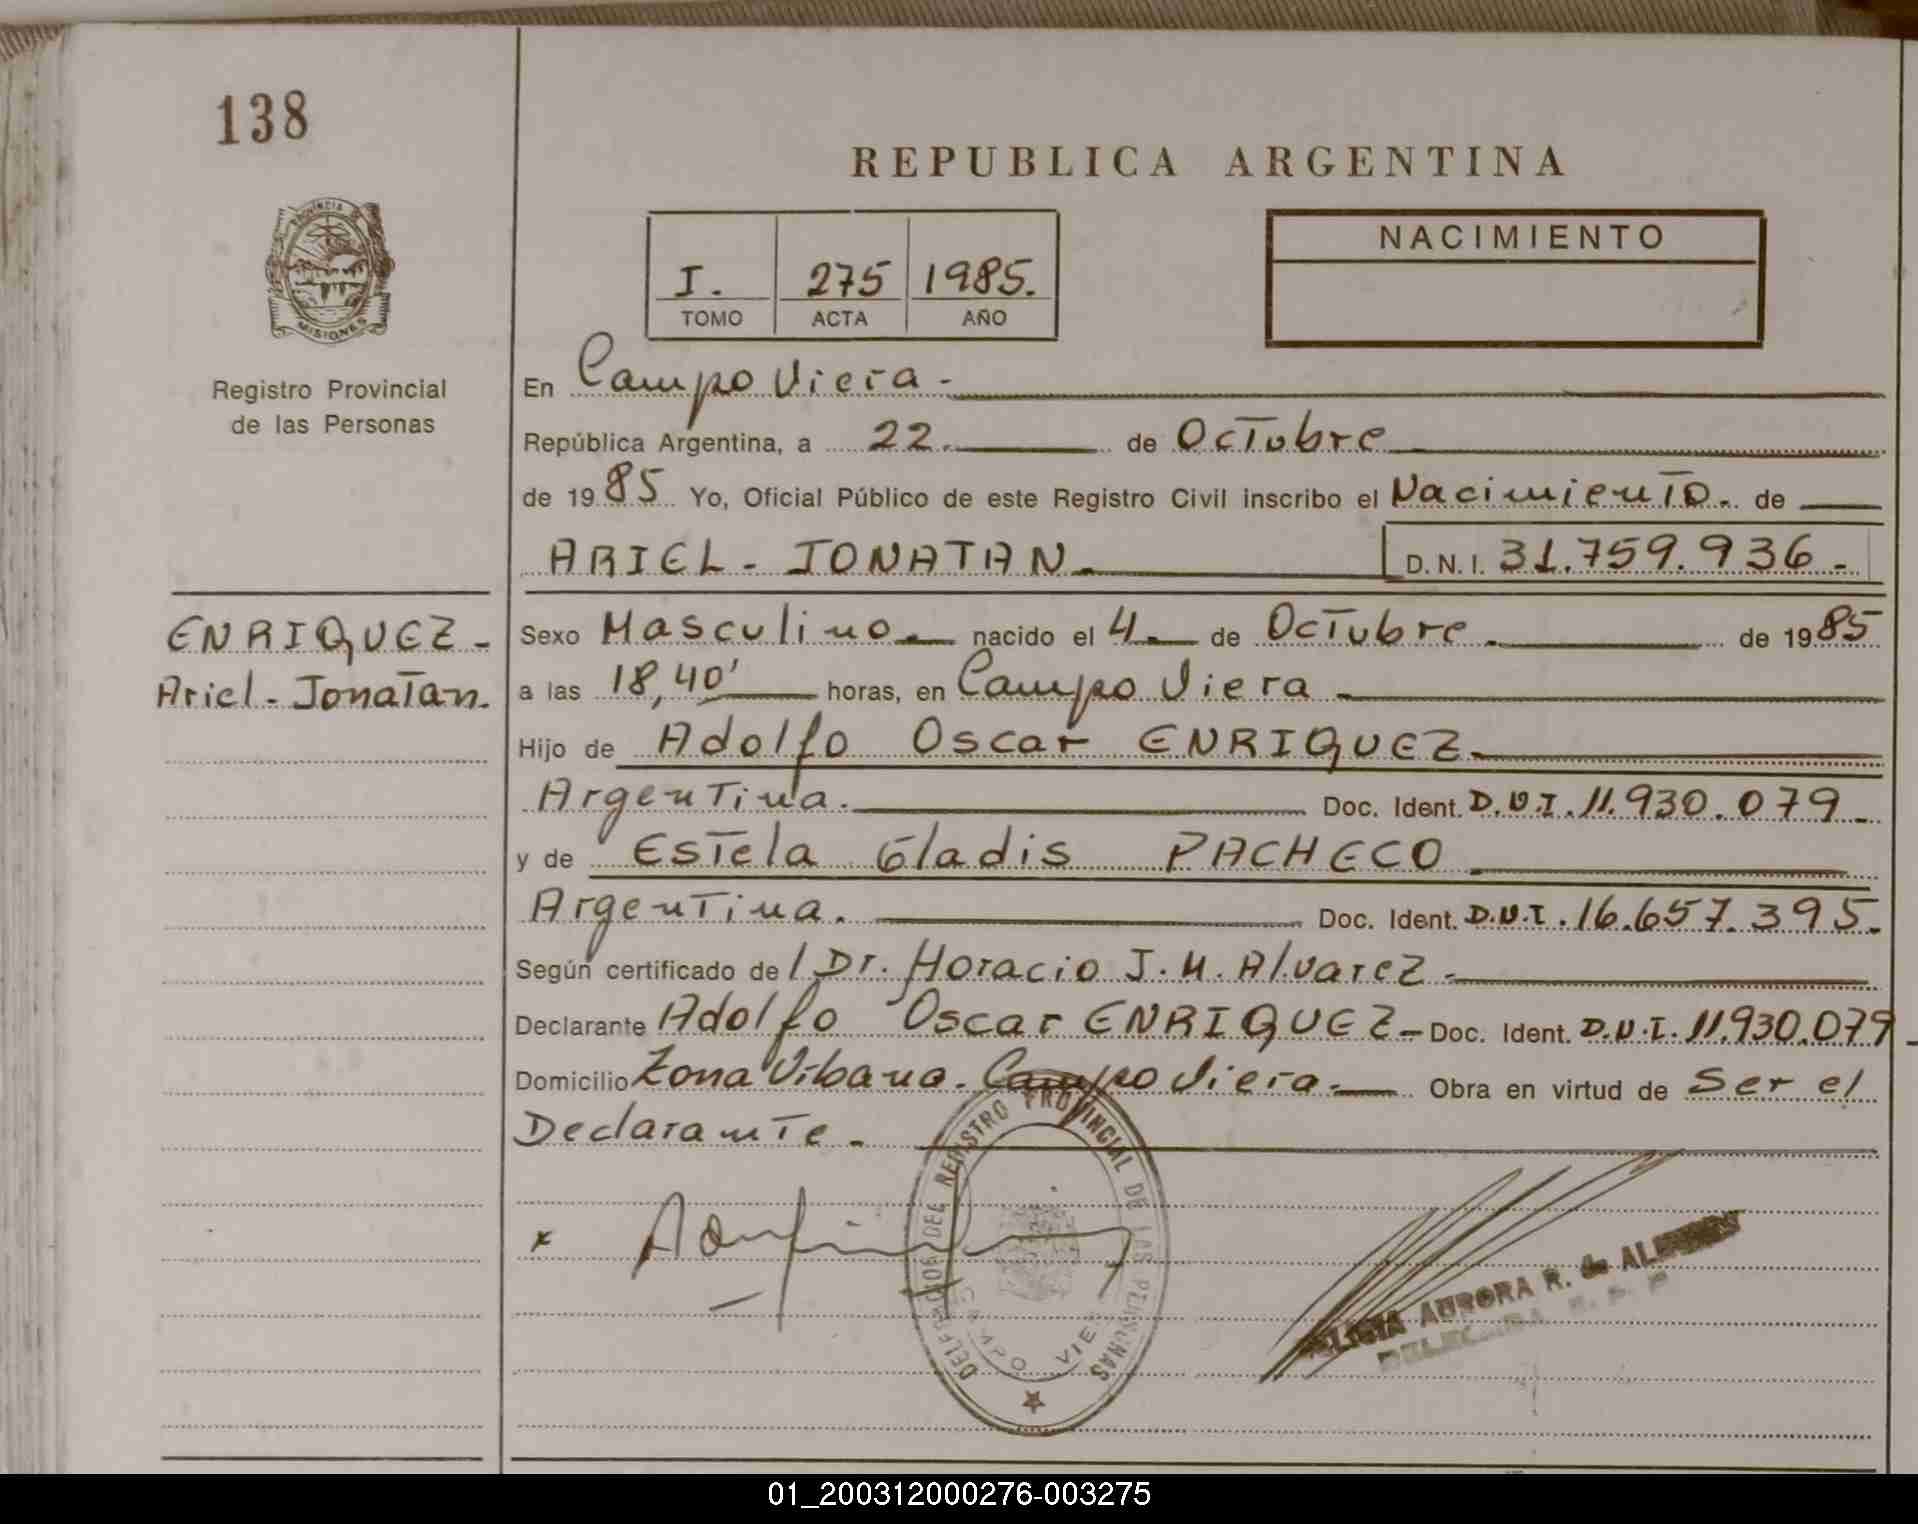 138
REPUBLICA ARGENTINA
PROVINCIA DE
MISIONES
Registro Provincial
de las Personas
I. 275 1985.
TOMO ACTA AÑO
NACIMIENTO
En Campo Viera.
República Argentina, a 22. de Octubre
de 1985 Yo, Oficial Público de este Registro Civil inscribo el Nacimiento. de
ARIEL - JONATAN. D. N. I. 31.759.936.-
ENRIQUEZ -
Ariel - Jonatan.
Sexo Masculino. nacido el 4. de Octubre. de 1985
a las 18,40' horas, en Campo Viera
Hijo de Adolfo Oscar ENRIQUEZ.
Argentina. Doc. Ident. D.N.I. 11.930.079.
y de Estela Gladis PACHECO
Argentina. Doc. Ident. D.N.I. 16.657.395.
Según certificado de / Dr. Horacio J. M. Alvarez.
Declarante Adolfo Oscar ENRIQUEZ - Doc. Ident. D.N.I. 11.930.079 -
Domicilio Zona Urbana. Campo Viera. Obra en virtud de Ser el
Declarante.
DEL REGISTRO PROVINCIAL DE LAS PERSONAS
CAMPO
AURORA R. de
01_200312000276-003275